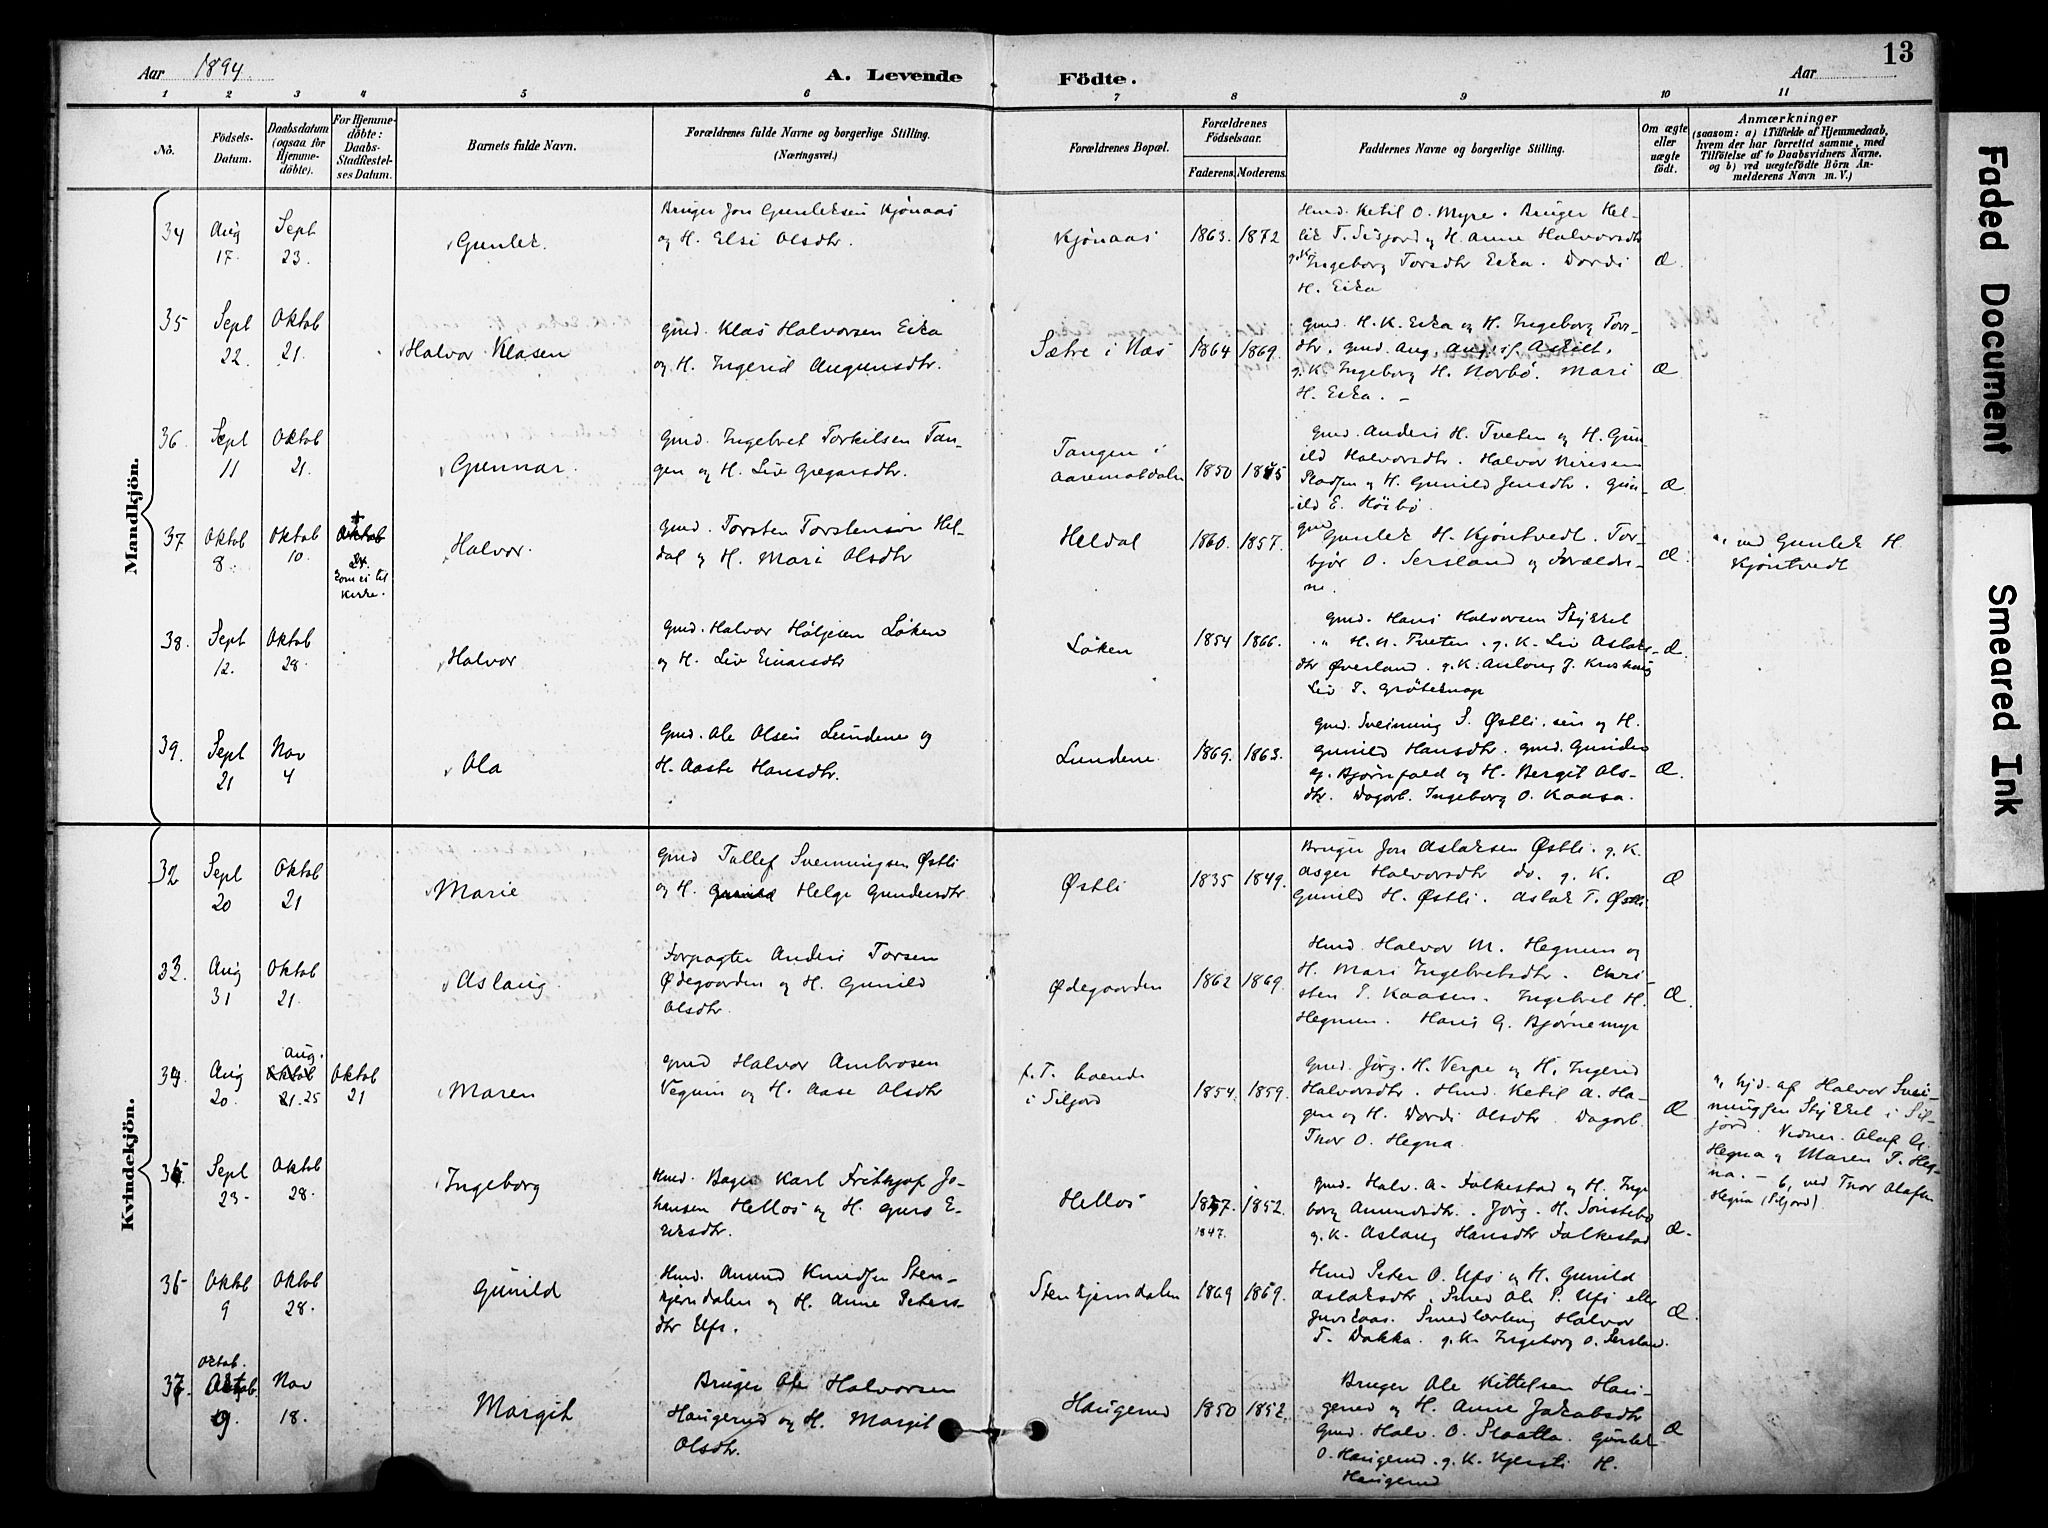 Aar 1894.
A. Levende Födte.
Aar
13
1 2 3 4 5 6 7 8 9 10 11
No.
Födsels-
Datum.
Daabsdatum
(ogsaa for
Hjemme-
döbte).
For Hjemme-
döbte:
Daabs-
Stadfæstel-
ses Datum.
Barnets fulde Navn.
Forældrenes fulde Navne og borgerlige Stilling.
(Næringsvei.)
Forældrenes Bopæl.
Forældrenes
Födselsaar.
Faderens. Moderens.
Faddernes Navne og borgerlige Stilling.
Om ægte
eller
uægte
födt.
Anmærkninger
(saasom: a) i Tilfælde af Hjemmedaab,
hvem der har forrettet samme, med
Tilföielse af to Daabsvidners Navne,
og b) ved uægtefödte Börn An-
melderens Navn m. V.)
Mandkjön.
34
Aug
17.
Sept
23.
Gunlek.
Bruger Jon Gunleksen Kjönaas
og H. Elsi Olsdtr.
Kjönaas
1863. 1872
Hmd. Ketil O. Myre. Bruger Hel-
lik T. Sisjord og H. Anne Halvorsdtr
g.K. Ingeborg Torsdtr Eika. Dordi
H. Eika
Æ.
35
Sept
22.
Oktob
21.
Halvor Klasen
Gmd. Klas Halvorsen Eika
og H. Ingerid Augunsdtr.
Sætre i Næs
1864 1869.
Gmd. H. K. Eika og H. Ingeborg Tors-
dtr. Gmd. Aug. Aug.sf. Askilt.
g.K. Ingeborg H. Norbö. Mari
H. Eika. –
Æ
36
Sept
11
Oktob
21.
Gunnar.
Gmd. Ingebret Torkilsen Tan-
gen og H. Liv Gregarsdtr.
Tangen i
Aaremotdalen
1850 1855
Gmd. Anders H. Tveten og H. Gun-
ild Halvorsdtr. Halvor
og H. Gunild Jensdtr. Gun-
ild E. Höibö.
Æ.
37
Oktob
8.
Oktob
10.
Oktob
21.
kom ei til
Kirke.
Halvor.
Gmd. Torsten Torstensön Hel-
dal og H. Mari Olsdtr
Heldal
1860. 1857.
Gmd Gunlek H. Kjöntvedt. Tor-
björ O. Sersland og Forældre-
ne.
Æ.
a, ved Gunlek H.
Kjöntvedt
38.
Sept
12.
Oktob
28.
Halvor
Gmd. Halvor Höljesen Löken
og H. Liv Einarsdtr
Löken
1854 1866.
Gmd. Hans Halvorsen Stykket
" H. N. Tveten. g.K. Liv Aslaks-
dtr Överland. g.K. Aslaug J.
Liv T. Gröteknap
Æ.
39.
Sept
21
Nov
4
Ola
Gmd. Ole Olsen Lundene og
H. Aaste Hansdtr.
Lundene.
1869. 1863.
Gmd. Sveinung S. Östli. sen og H.
Gunild Hansdtr. Gmd. Gunder
G. Björnfald og H. Bergit Ols-
dtr. Dagarb. Ingeborg O. Kaasa.
Æ.
Kvindekjön.
32
Sept
20
Oktob
21
Marie
Gmd Tallef Svenningsen Östli
og H. Gunild Helge Gundersdtr
Östli
1835 1849.
Bruger Jon Aslaksen Östli. g.K.
Asger Halvorsdtr do. g.K.
Gunild H. Östli. Aslak T. Östli
Æ
33.
Aug
31
Oktob
21.
Aslaug.
Forpagter Anders Torsen
Ödegaarden og H. Gunild
Olsdtr.
Ödegaarden
1862 1869.
Hmd. Halvor M. Hegnum og
H. Mari Ingebretsdtr. Chri-
sten T. Kaasen. Ingebret H.
Hegnum. Hans G. Björnemyr
Æ.
34.
Aug
20.
Aug.
Oktob
21. 25
Oktob
21
Maren
Gmd Halvor Ambrosen
Vegum og H. Aase Olsdtr
f.T. boende
i Siljord
1854. 1859.
Gmd. Jörg. H. Verpe og H. Ingerid
Halvorsdtr. Hmd. Ketil A. Ha-
gen og H. Dordi Olsdtr. Dagarb.
Thor O. Hegna.
Æ
a, hjd. af Halvor Svei-
nungsen Stykket i Sil-
jord. Vidner. Olaf G.
Hegna og Maren T. Heg-
na. – b, ved Thor Olafsen
Hegna (Siljord).
35.
Sept
23.
Oktob
28.
Ingeborg
Hmd. Bager Karl Frithjof Jo-
hansen Hellos og H. Guro E-
riksdtr.
Hellos
1857.
1847.
1852.
Gmd. Halv. A. Falkestad og H. Inge-
borg Amundsdtr. Jörg. H. Sönstebö
g.K. Aslaug Hansdtr Falkestad
Æ.
36
Oktb
9
Oktob
28.
Gunild
Hmd. Amund Knudsen Sten-
kjerndalen og H. Anne Peters-
dtr Ufs.
Stenkjerndalen
1869 1869.
Hmd Peter O. Ufs og H. Gunild
Aslaksdtr. Smed Ole P. Ufs eller
. Smedlærling Halvor
T. Dakka. g.K. Ingeborg O. Sersland.
Æ.
37.
Oktob.
9.
Nov
18.
Margit
Bruger Ole Halvorsen
Haugerud og H. Margit
Olsdtr.
Haugerud
1850 1852.
Bruger Ole Kittelsen Hau-
gerud og H. Anne Jakobsdtr
Gmd. Halv. O. Plaatta. Gunlek
O. Haugerud. g.K. Kjersti H.
Haugerud
Æ
Faded Document
Smeared Ink